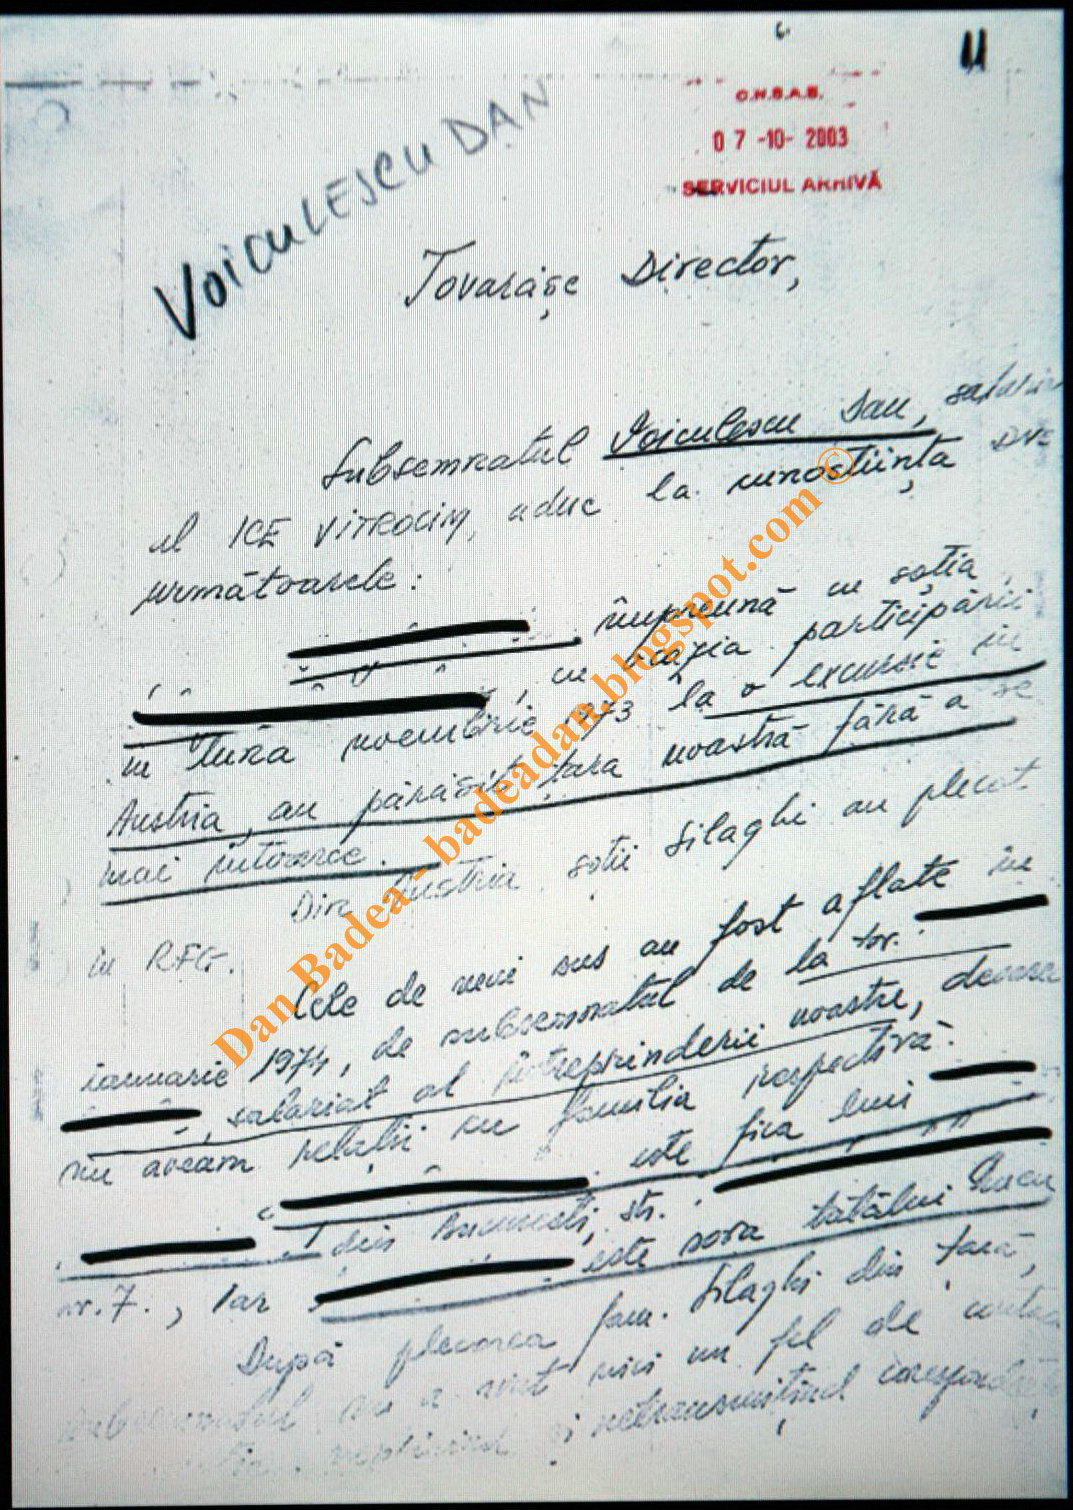 11
C.N.S.A.S.
07-10-2003
SERVICIUL ARHIVĂ
VOICULESCU DAN
Tovarășe Director,
Subsemnatul Voiculescu Dan,
al ICE VITROCIM, aduc la cunostiință
următoarele:
împreună cu soția
, cu ocazia participării
în luna noembrie 1973 la o excursie în
Austria, au părăsit țara noastră fără a se
mai întoarce.
Din Austria soții Silaghi au plecat
în RFG.
Cele de mai sus au fost aflate în
ianuarie 1974, de subsemnatul de la tov.
, salariat al întreprinderii noastre, deoarece
nu aveam relații cu familia respectivă.
este fiica lui
din București, str.
nr. 7., iar este sora tatălui
După plecarea fam. Silaghi din țară,
subsemnatul nu a avut nici un fel de
și netransmițînd
Dan Badea - badeadan.blogspot.com ©